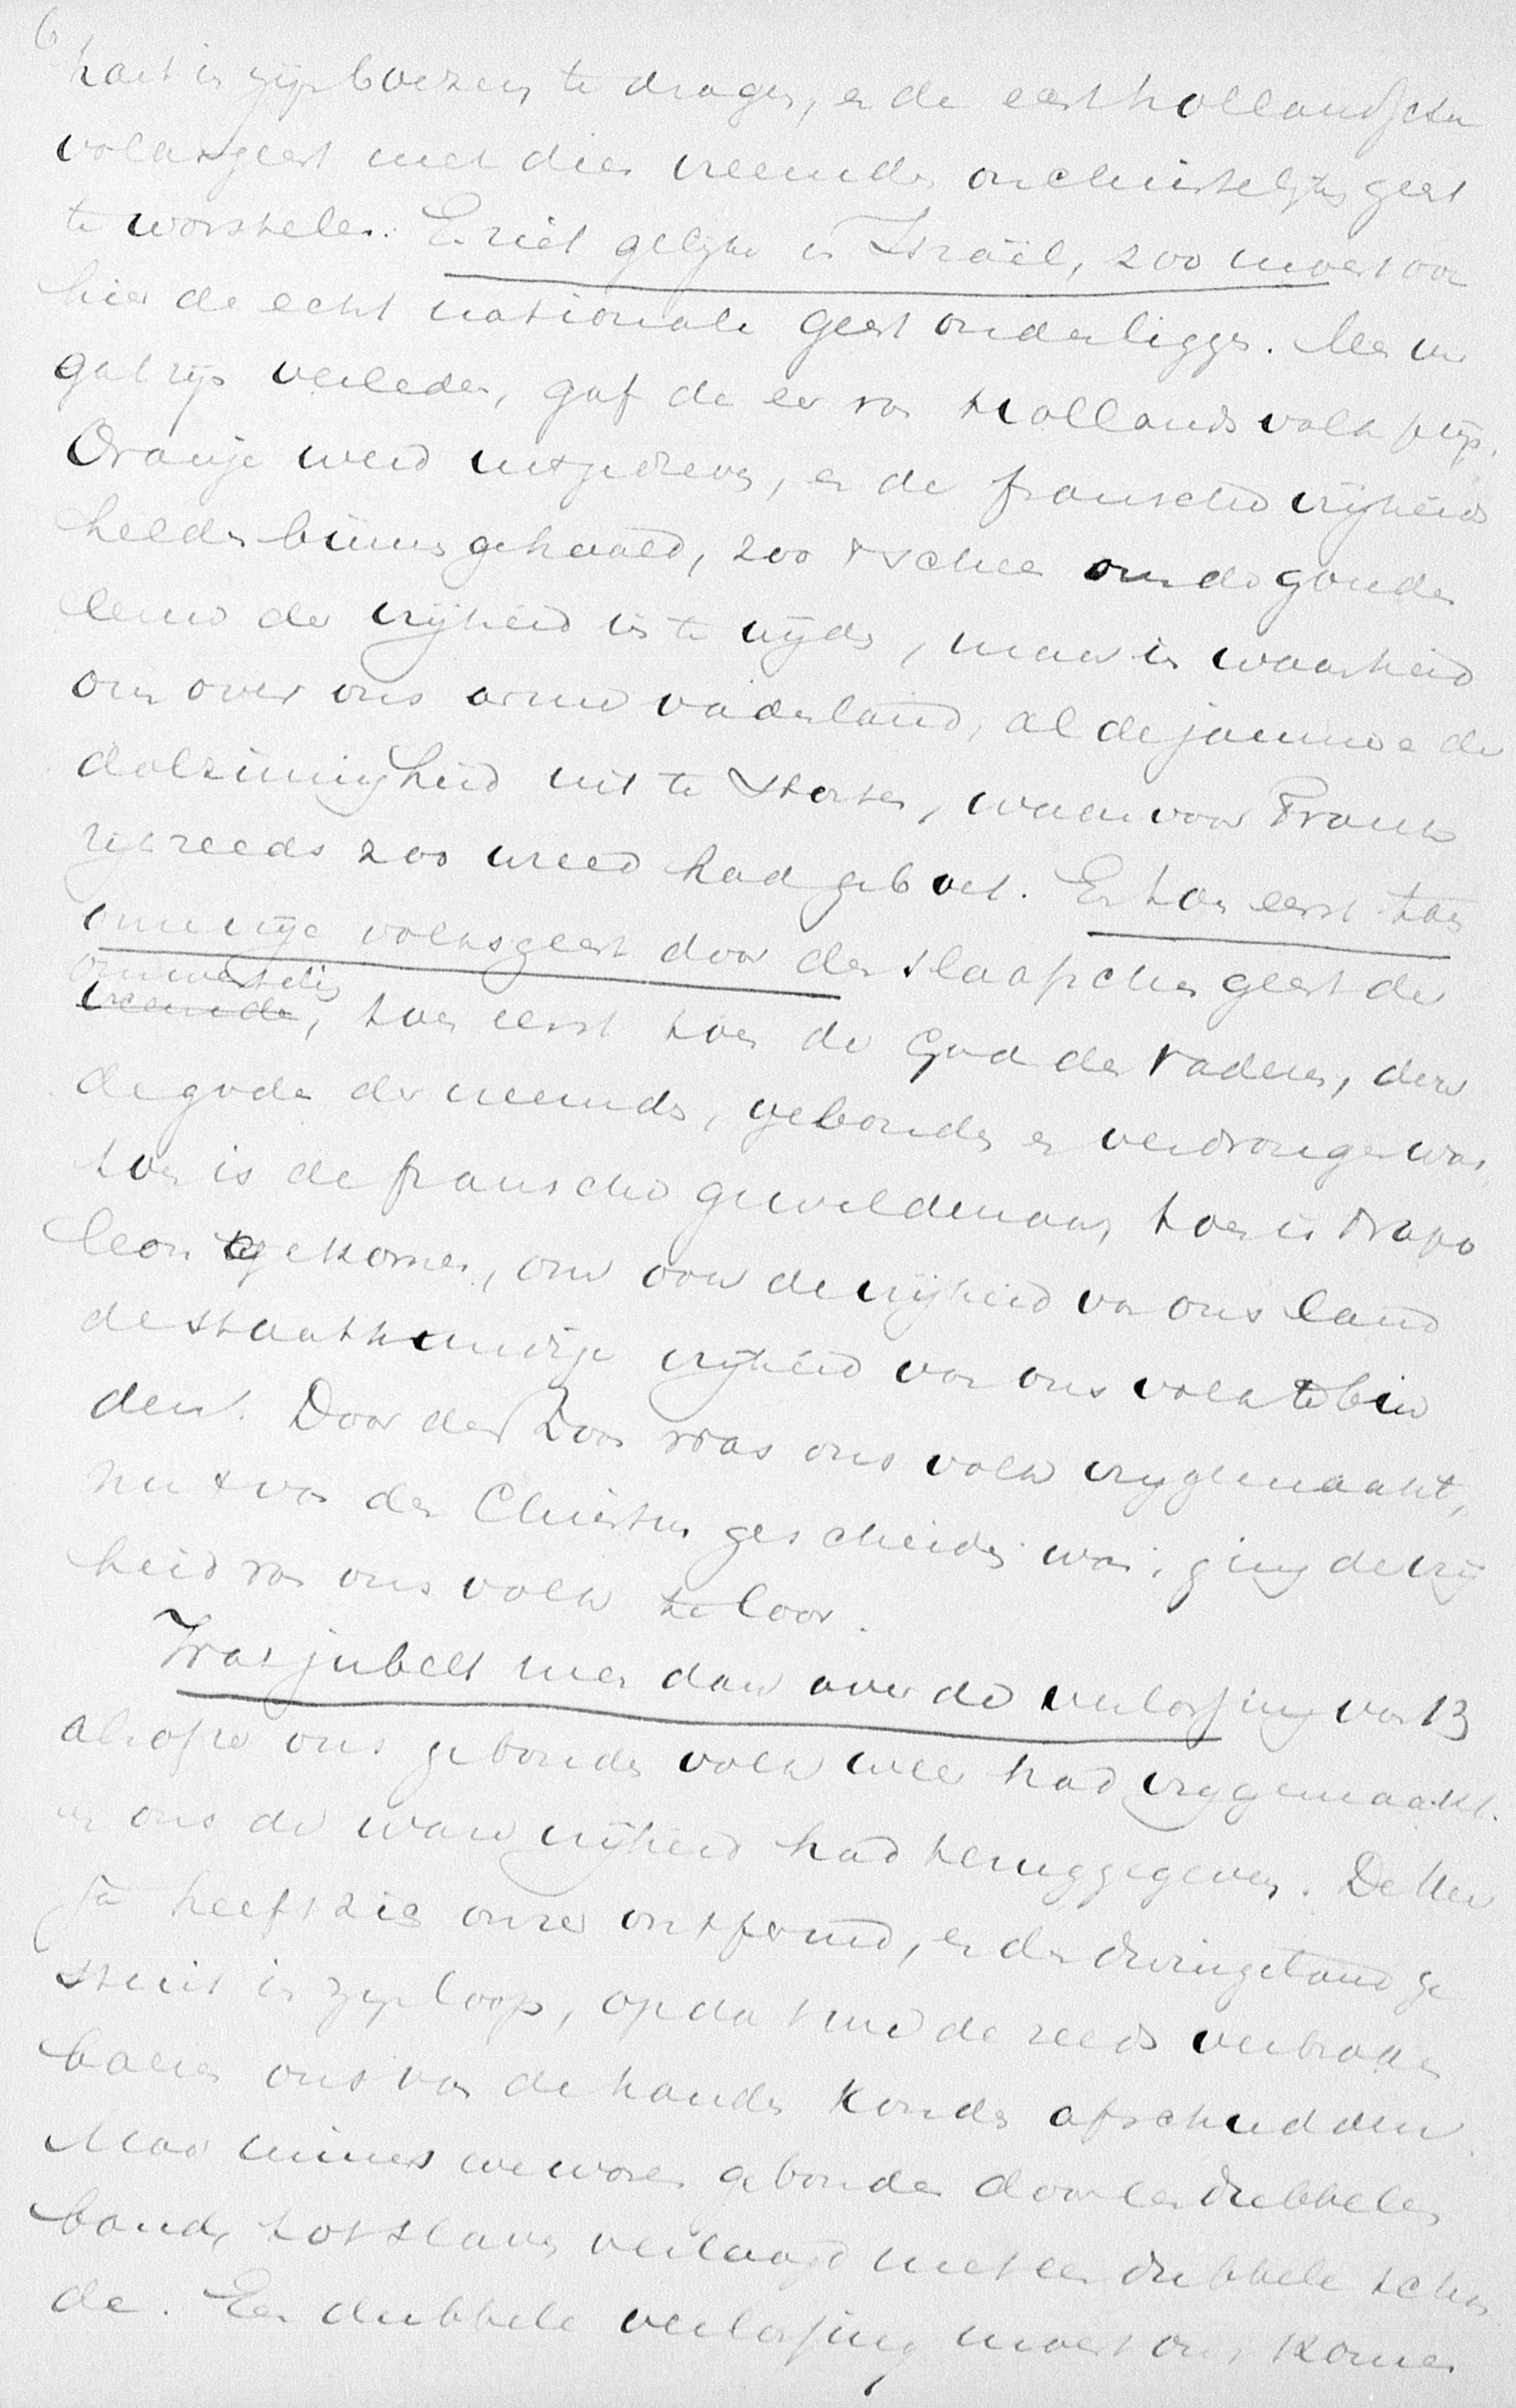 6
hart in zijn boezem te dragen, en de echt hollandschen
volksgeest met dien vreemden onchristelijken geest
te worstelen. En niet gelijk in Israël, zoo moest ook
hier de echt nationale geest onderliggen. Men ver
gat zijn verleden, gaf de eer van Hollands volk prijs.
Oranje werd uitgedreven, en de fransche vrijheids
helden binnengehaald, zoo 't scheen om de gouden
eeuw der vrijheid in te wijden, maar in waarheid
om over ons arme vaderland, al de jammeren der
dolzinnigheid uit te storten, waarvoor Frank
rijk reeds zoo wreed had geboet. En toen eerst toen
onze vrije volksgeest door den slaafschen geest der
onwaardig
vreemde, toen eerst toen de God der vaderen, door
de goden der vreemden, gebonden en verdrongen was,
toen is de fransche geweldenaar, toen is Napo
leon gekomen, om ook de vrijheid van ons land
de staatkundige vrijheid van ons volk te bin
den. Door den Zoon was ons volk vrijgemaakt,
nu 't van den Christus gescheiden was, ging de vrij
heid van ons volk te loor.
Wat jubelt men dan over de verlossing van 13
alsof ze ons gebonden volk weer had vrijgemaakt.
en ons de ware vrijheid had teruggegeven. De Heer
ja heeft zich onzer ontfermd, en den dwingeland ge
stuit in zijn loop, opdat we de reeds verbroken
boeien ons van de handen konden afschudden.
Maar immers we waren gebonden door een dubbelen
band, tot slaven verlaagd met een dubbele schan
de. Een dubbele verlossing moest ons komen